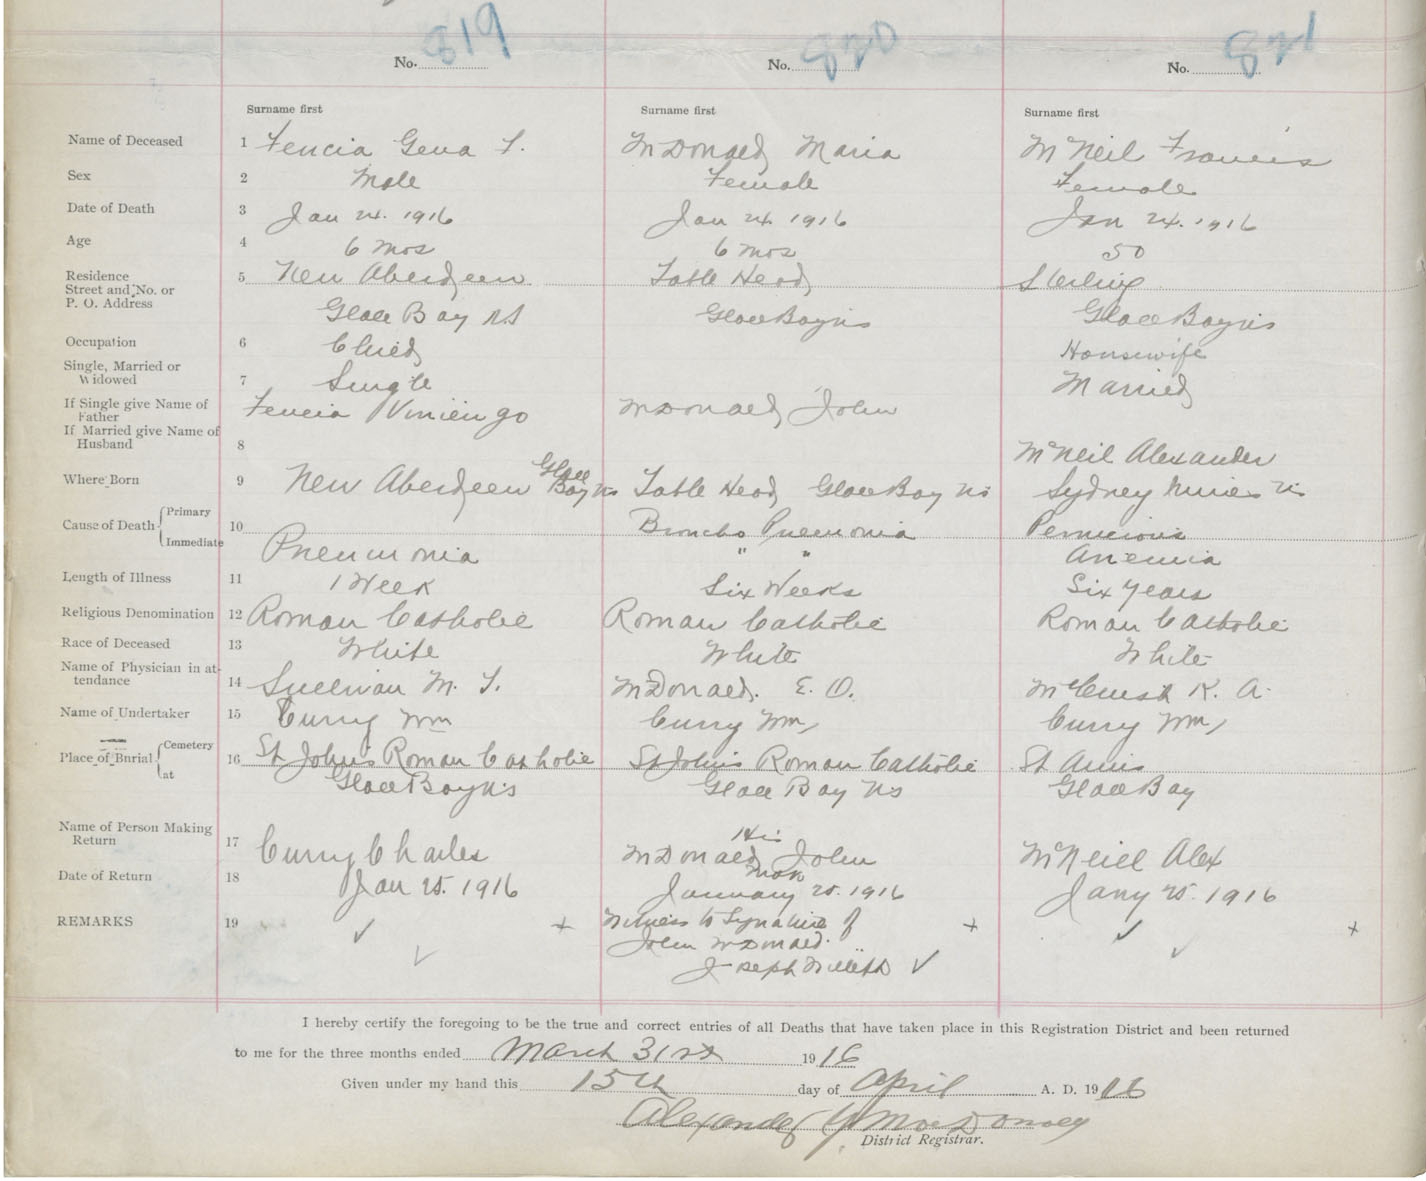 No. 819 No. 820 No. 821
Surname first Surname first Surname first
Name of Deceased 1 Fencia Gena F. McDonald Maria McNeil Francis
Sex 2 Male Female Female
Date of Death 3 Jan 24. 1916 Jan 24 1916 Jan 24. 1916
Age 4 6 mos 6 mos 50
Residence 5 New Aberdeen Table Head Sterling
Street and No. or
P. O. Address Glace Bay NS Glace Bay NS Glace Bay NS
Occupation 6 Child Housewife
Single, Married or
Widowed 7 Single Married
If Single give Name of
Father Fencia McDonald John
If Married give Name of
Husband 8 McNeil Alexander
Where Born 9 New Aberdeen Glace Bay NS Table Head Glace Bay NS Sydney Mines NS
Cause of Death Primary 10 Broncho Pneumonia Pernicious
Immediate Pneumonia " " Anemia
Length of Illness 11 1 Week Six Weeks Six Years
Religious Denomination 12 Roman Catholic Roman Catholic Roman Catholic
Race of Deceased 13 White White White
Name of Physician in at-
tendance 14 Sullivan M. T. McDonald. E. O. McCuish K. A.
Name of Undertaker 15 Curry Wm Curry Wm, Curry Wm,
Place of Burial Cemetery 16 St Johns Roman Catholic St Johns Roman Catholic St Anns
at Glace Bay NS Glace Bay NS Glace Bay
Name of Person Making
Return 17 Curry Charles McDonald His John McNeill Alex
mark
Date of Return 18 Jan 25. 1916 January 25. 1916 Jany 25. 1916
REMARKS 19 ✓ + Witness to Signature of + ✓ +
✓ John McDonald. ✓
Joseph ✓
I hereby certify the foregoing to be the true and correct entries of all Deaths that have taken place in this Registration District and been returned
to me for the three months ended March 31st 1916
Given under my hand this 15th day of April A. D. 1916
Alexander MacDonald
District Registrar.